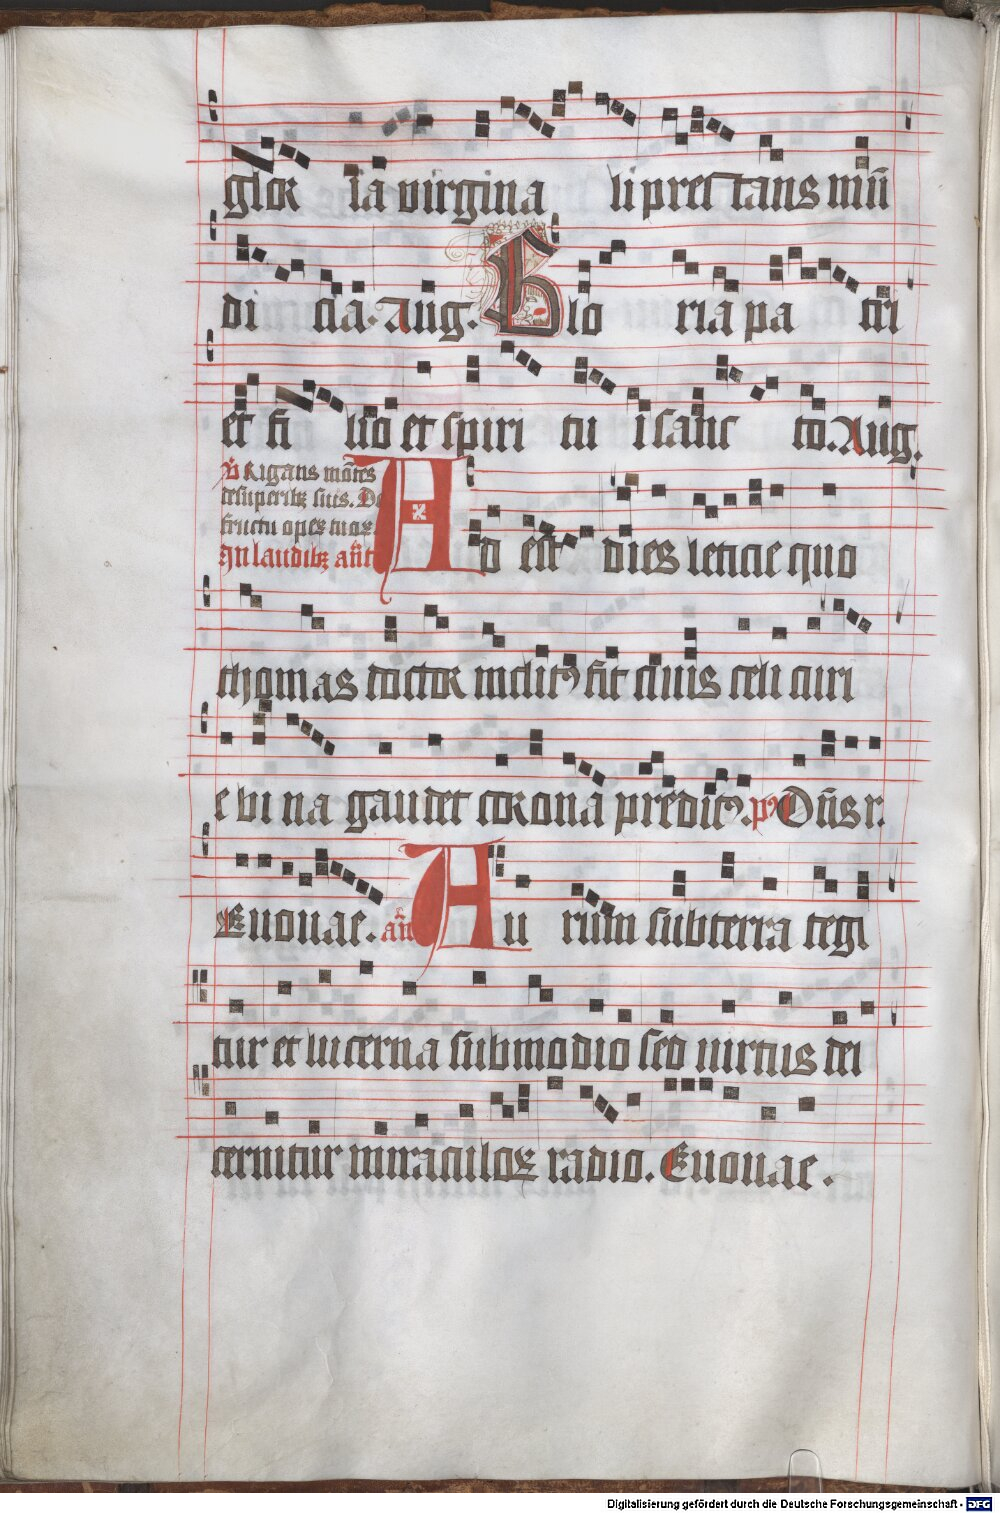 glor ia virgina li prestans mū
di cia. Aug. Glo ria pa tri
et fi lio et spiri tui sanc to. Aug.
V̄ Rigans mōtes
de superibꝫ suis. De
fructu operꝫ tuoꝝ
In laudibꝫ ant̄
Ad est dies leticie quo
thomas doctor inclitꝰ fit ciuis celi curi
e bi na gaudet corona predictꝰ. pꝰ Dn̄s r.
Euouae. an̄ Au rum sub terra tegi
tur et lucerna sub modio sed uirtus dei
cernitur miraculoꝝ radio. Euouae.
Digitalisierung gefördert durch die Deutsche Forschungsgemeinschaft - DFG